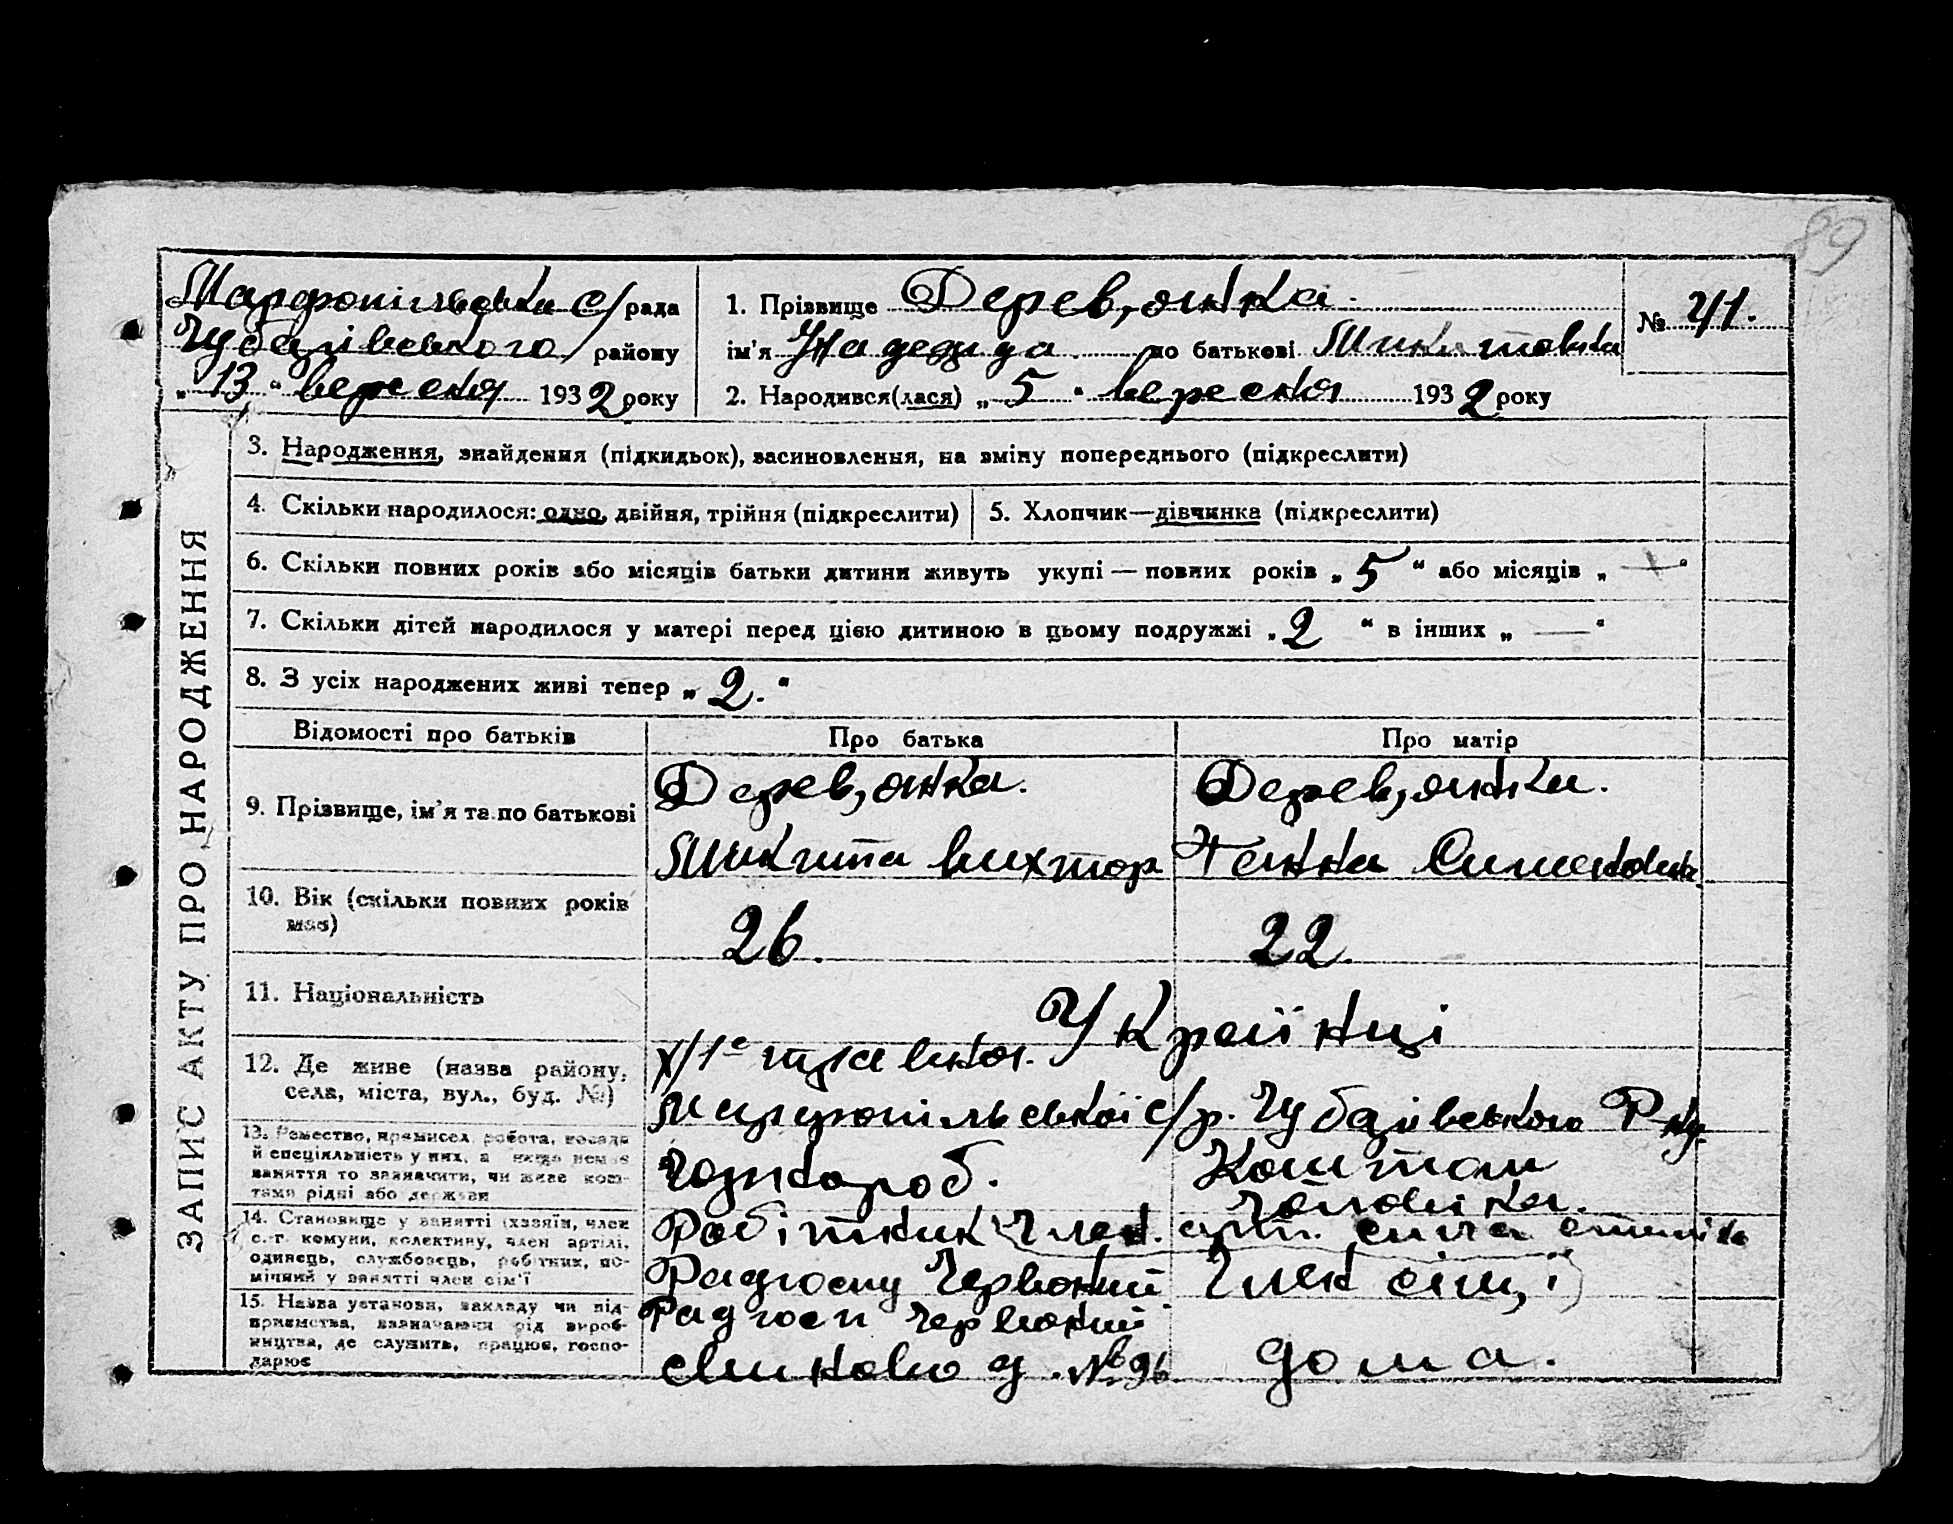 89
Марфопільська с/рада
Чубарівського району
„ 13 " вересня 1932 року
1. Прізвище Дерев,янка.
ім'я Надежда по батькові Микитовна
2. Народився(лася) „ 5 " вересня 1932 року
№ 41.
ЗАПИС АКТУ ПРО НАРОДЖЕННЯ
3. Народження, знайдення (підкидьок), засиновлення, на зміну попереднього (підкреслити)
4. Скільки народилося: одно, двійня, трійня (підкреслити)
5. Хлопчик—дівчинка (підкреслити)
6. Скільки повних років або місяців батьки дитини живуть укупі — повних років „ 5 " або місяців „ — "
7. Скільки дітей народилося у матері перед цією дитиною в цьому подружжі „ 2 " в інших „ — "
8. З усіх народжених живі тепер „ 2. "
Відомості про батьків
Про батька
Про матір
9. Прізвище, ім'я та по батькові
Дерев,янка.
Микита Вихтор
Дерев,янка.
Ганна
10. Вік (скільки повних років має)
26.
22.
11. Національність
Українці
12. Де живе (назва району, села, міста, вул., буд. №)
х/1е травня.
Марфопільської с/р. Чубарівського Р-ну.
13. Ремество, промисел, робота, посада
й спеціяльність у них, а якщо немає
заняття то зазначити, чи живе кош-
тами рідні або держави
Чорнороб.
Коштом
чоловіка.
14. Становище у занятті (хазяїн, член
с.-г. комуни, колективу, член артілі,
одинець, службовець, робітник, по-
мічний у занятті член сім'ї
Робітник член.
Радгоспу Червоний
Член сім,ї
15. Назва установи, закладу чи під-
приємства, зазначаючи рід вироб-
ництва, де служить, працює, госпо-
дарює
Радгосп Червоний
дома.